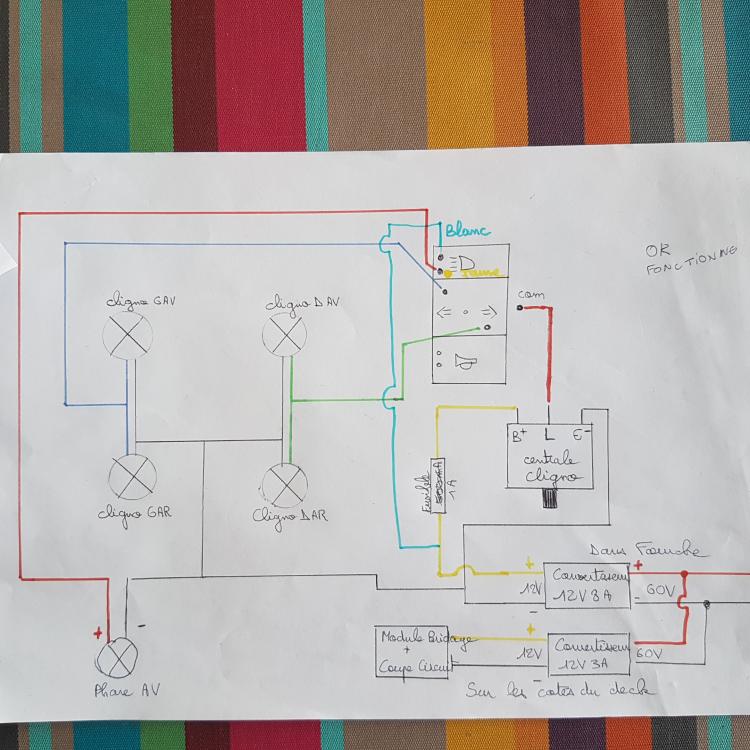 Blanc
OK
FONCTIONNE
Jaune
com
cligno GAV
cligno DAV
B+ L E-
centrale
cligno
Fusible
1A
cligno GAR
cligno DAR
Dans Fourche
+ Convertisseur +
12V 12V 8A 60V
- -
+ -
Phare AV
Module Bridage
+
Coupe Circuit
+ Convertisseur
12V 12V 3A 60V
-
Sur les cotés du deck